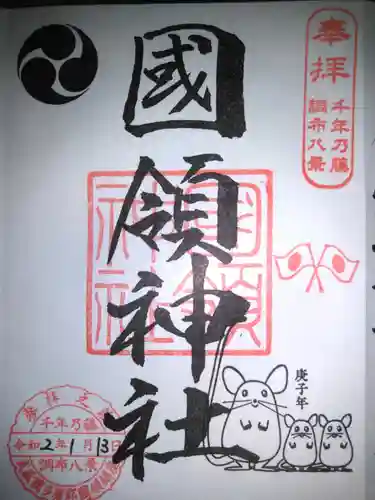 奉拝
千年乃藤
調布八景
國領神社
國領
神社
庚子年
千年乃藤
令和2年1月13日
調布八景